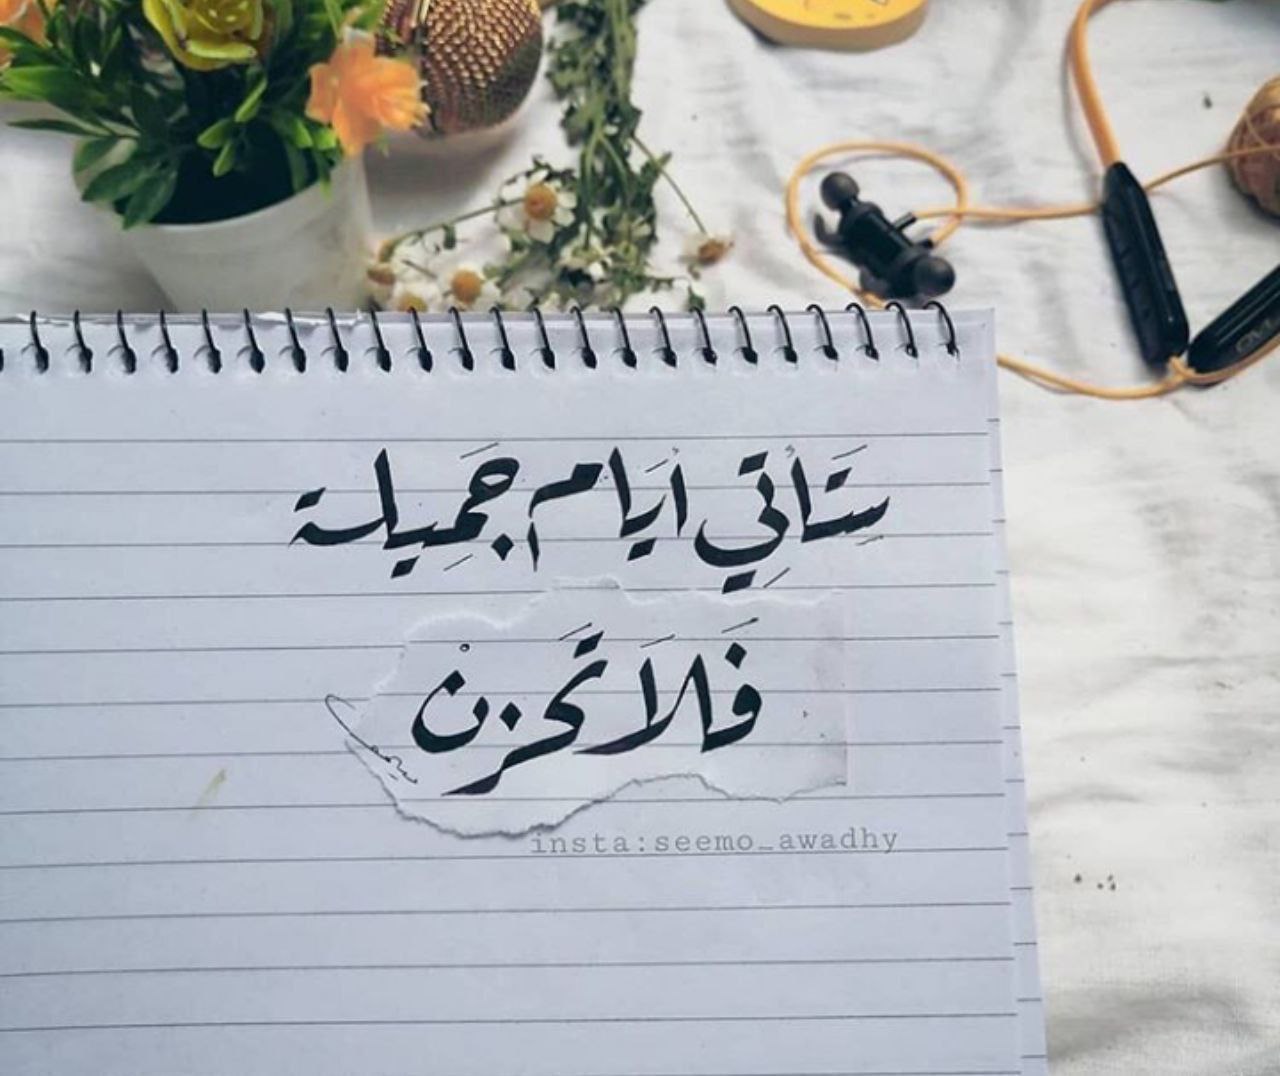 سَتَأتِي أيَام جَمِيلة
فَلَا تَحزنْ
insta:seemo_awadhy